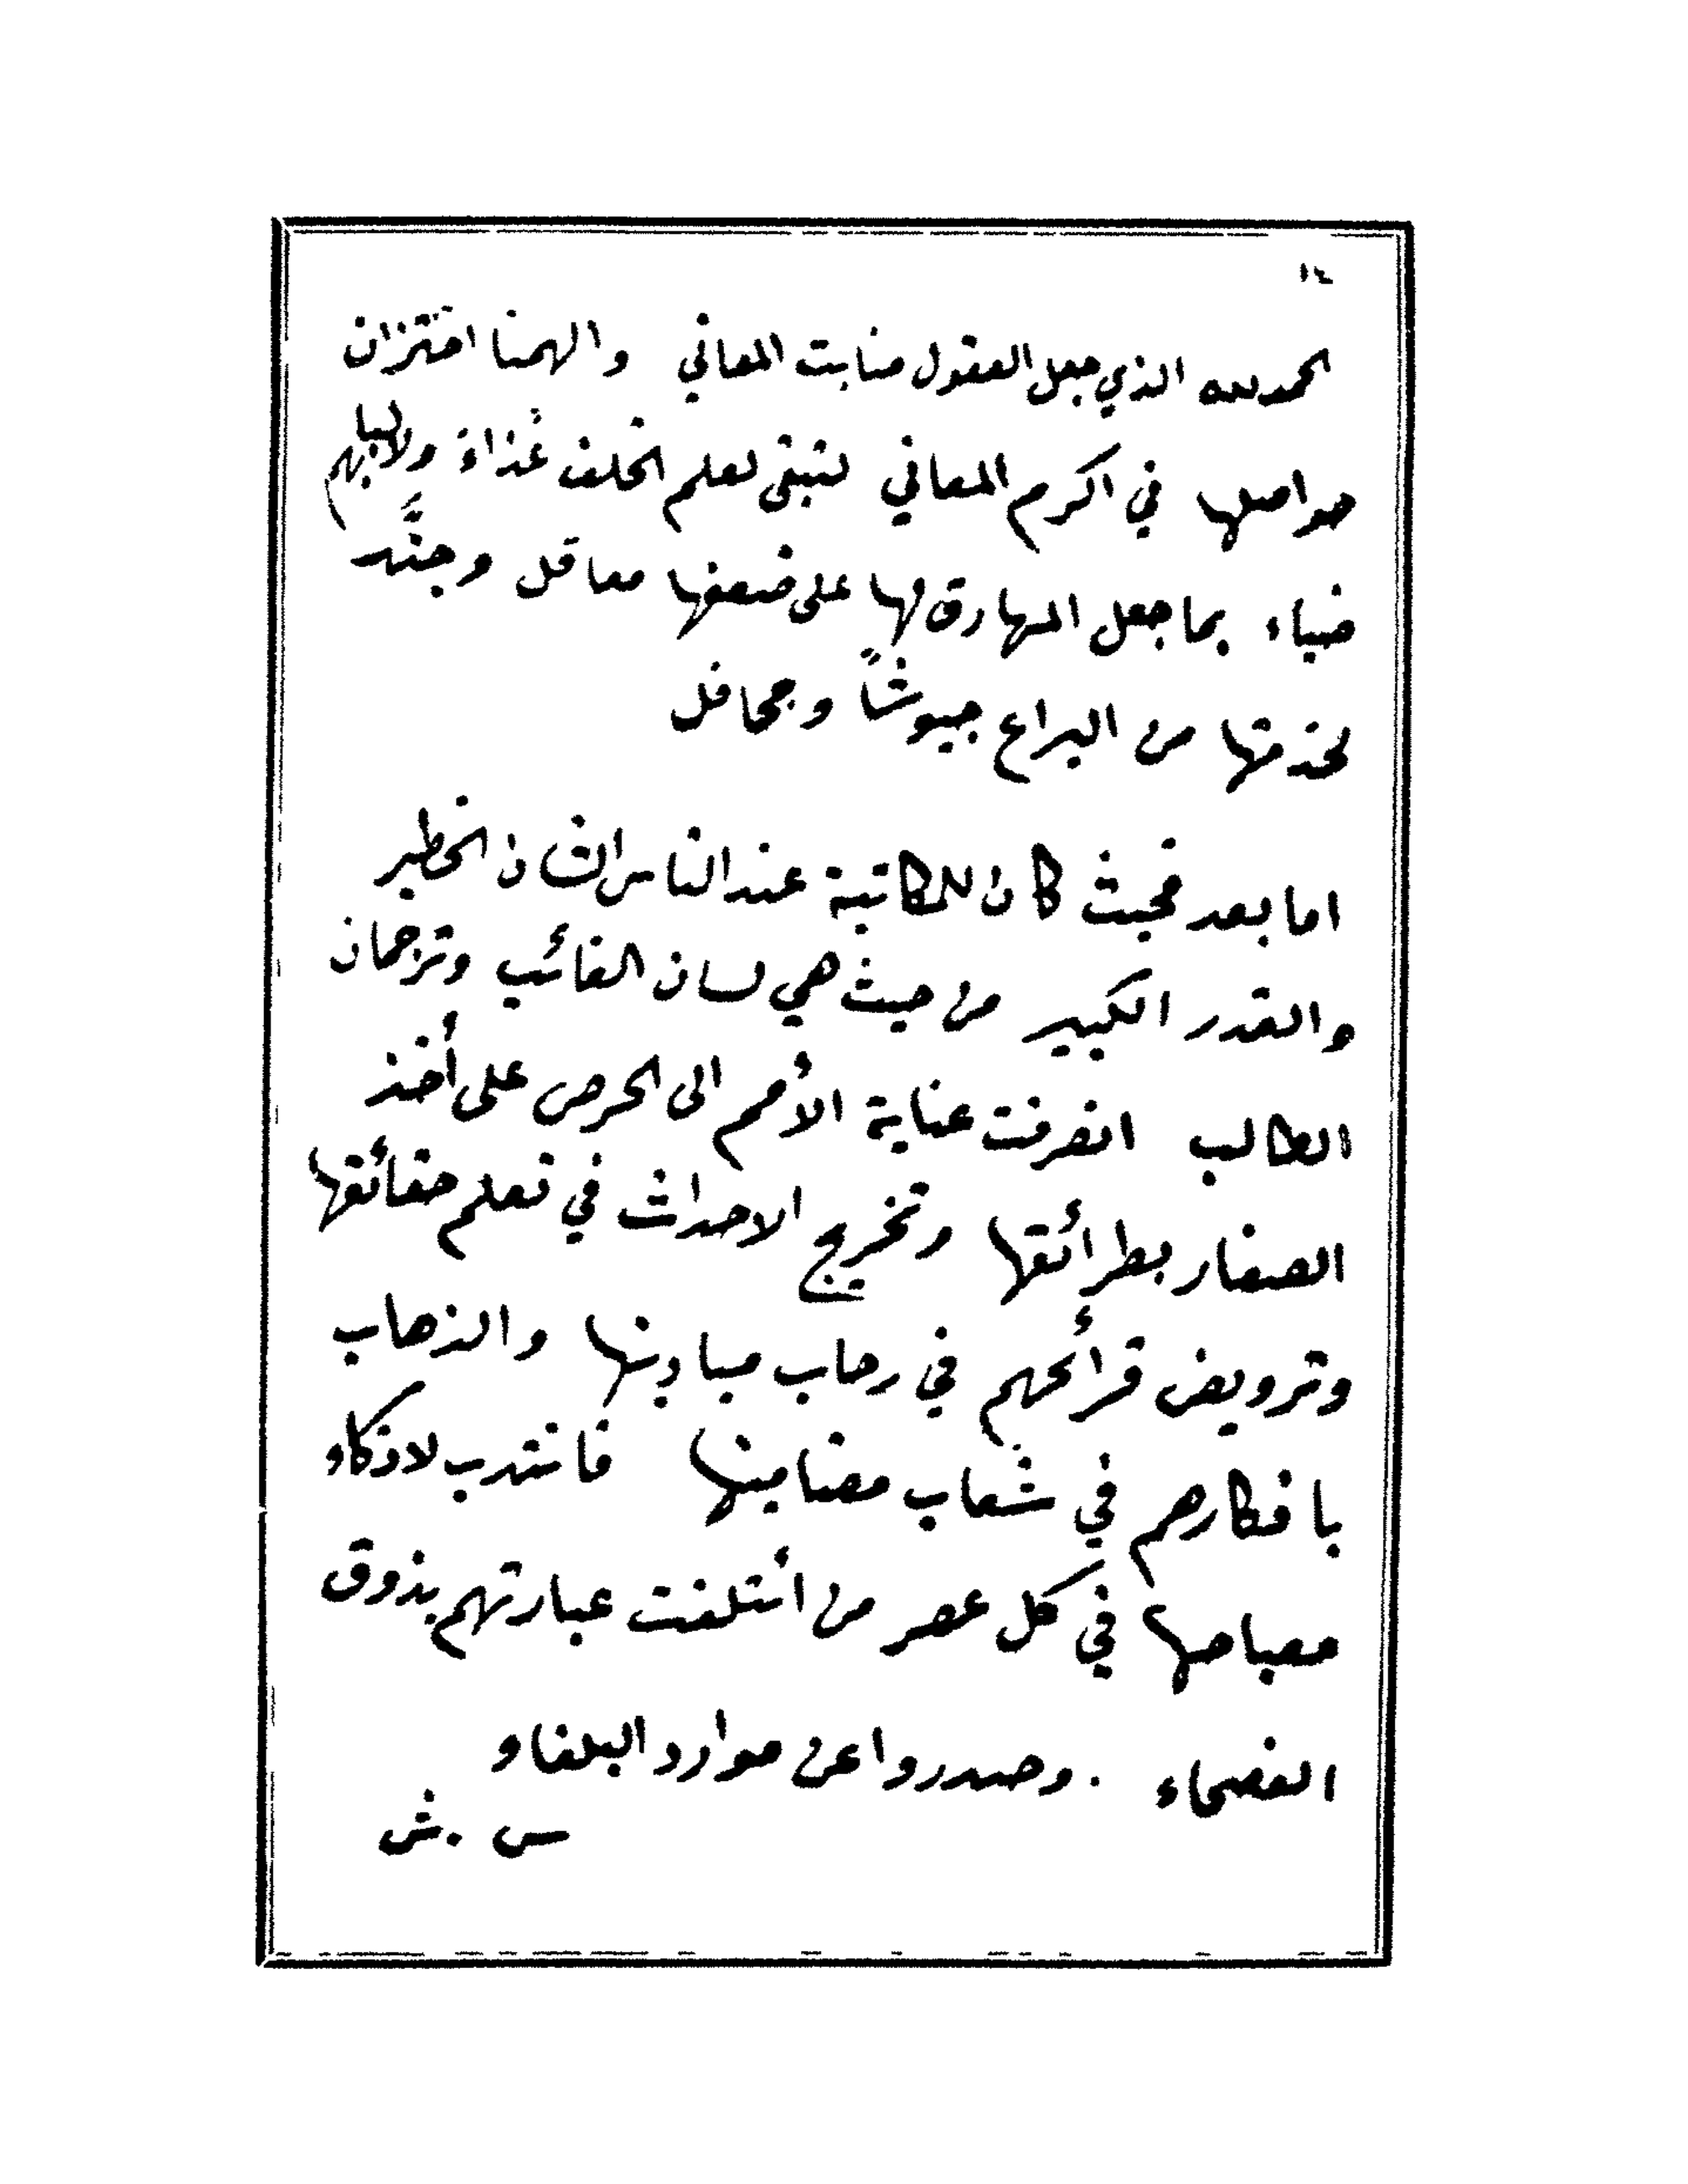 ١٤
الحمد لله الذي جعل العقول منابت المعاني والهمنا اختزان
حواصلها في اكرم المعاني لتبقى لعلم الخلف غذاءً ولالبابهم
ضياء بما جعل المهارق لها على ضعفها معاقل وجنَّد
لخدمتها من اليراع جيوشاً وجحافل
اما بعد فحيث كان للمكاتبة عند الناس الشان الخطير
والقدر الكبير من حيث هي لسان الغائب وترجمان
الطالب انصرفت عناية الأمم الى الحرص على أخذ
الصغار بطرائقها وتخريج الاحداث في تعلم حقائقها
وترويض قرائحهم في رحاب ميادينها والذهاب
بافكارهم في شعاب مضامينها فانتدب لاذكاء
مصباحها في كل عصر من أئتلفت عبارتهم بذوق
الفصحاء . وصدروا عن موارد البلغاء
س . ش